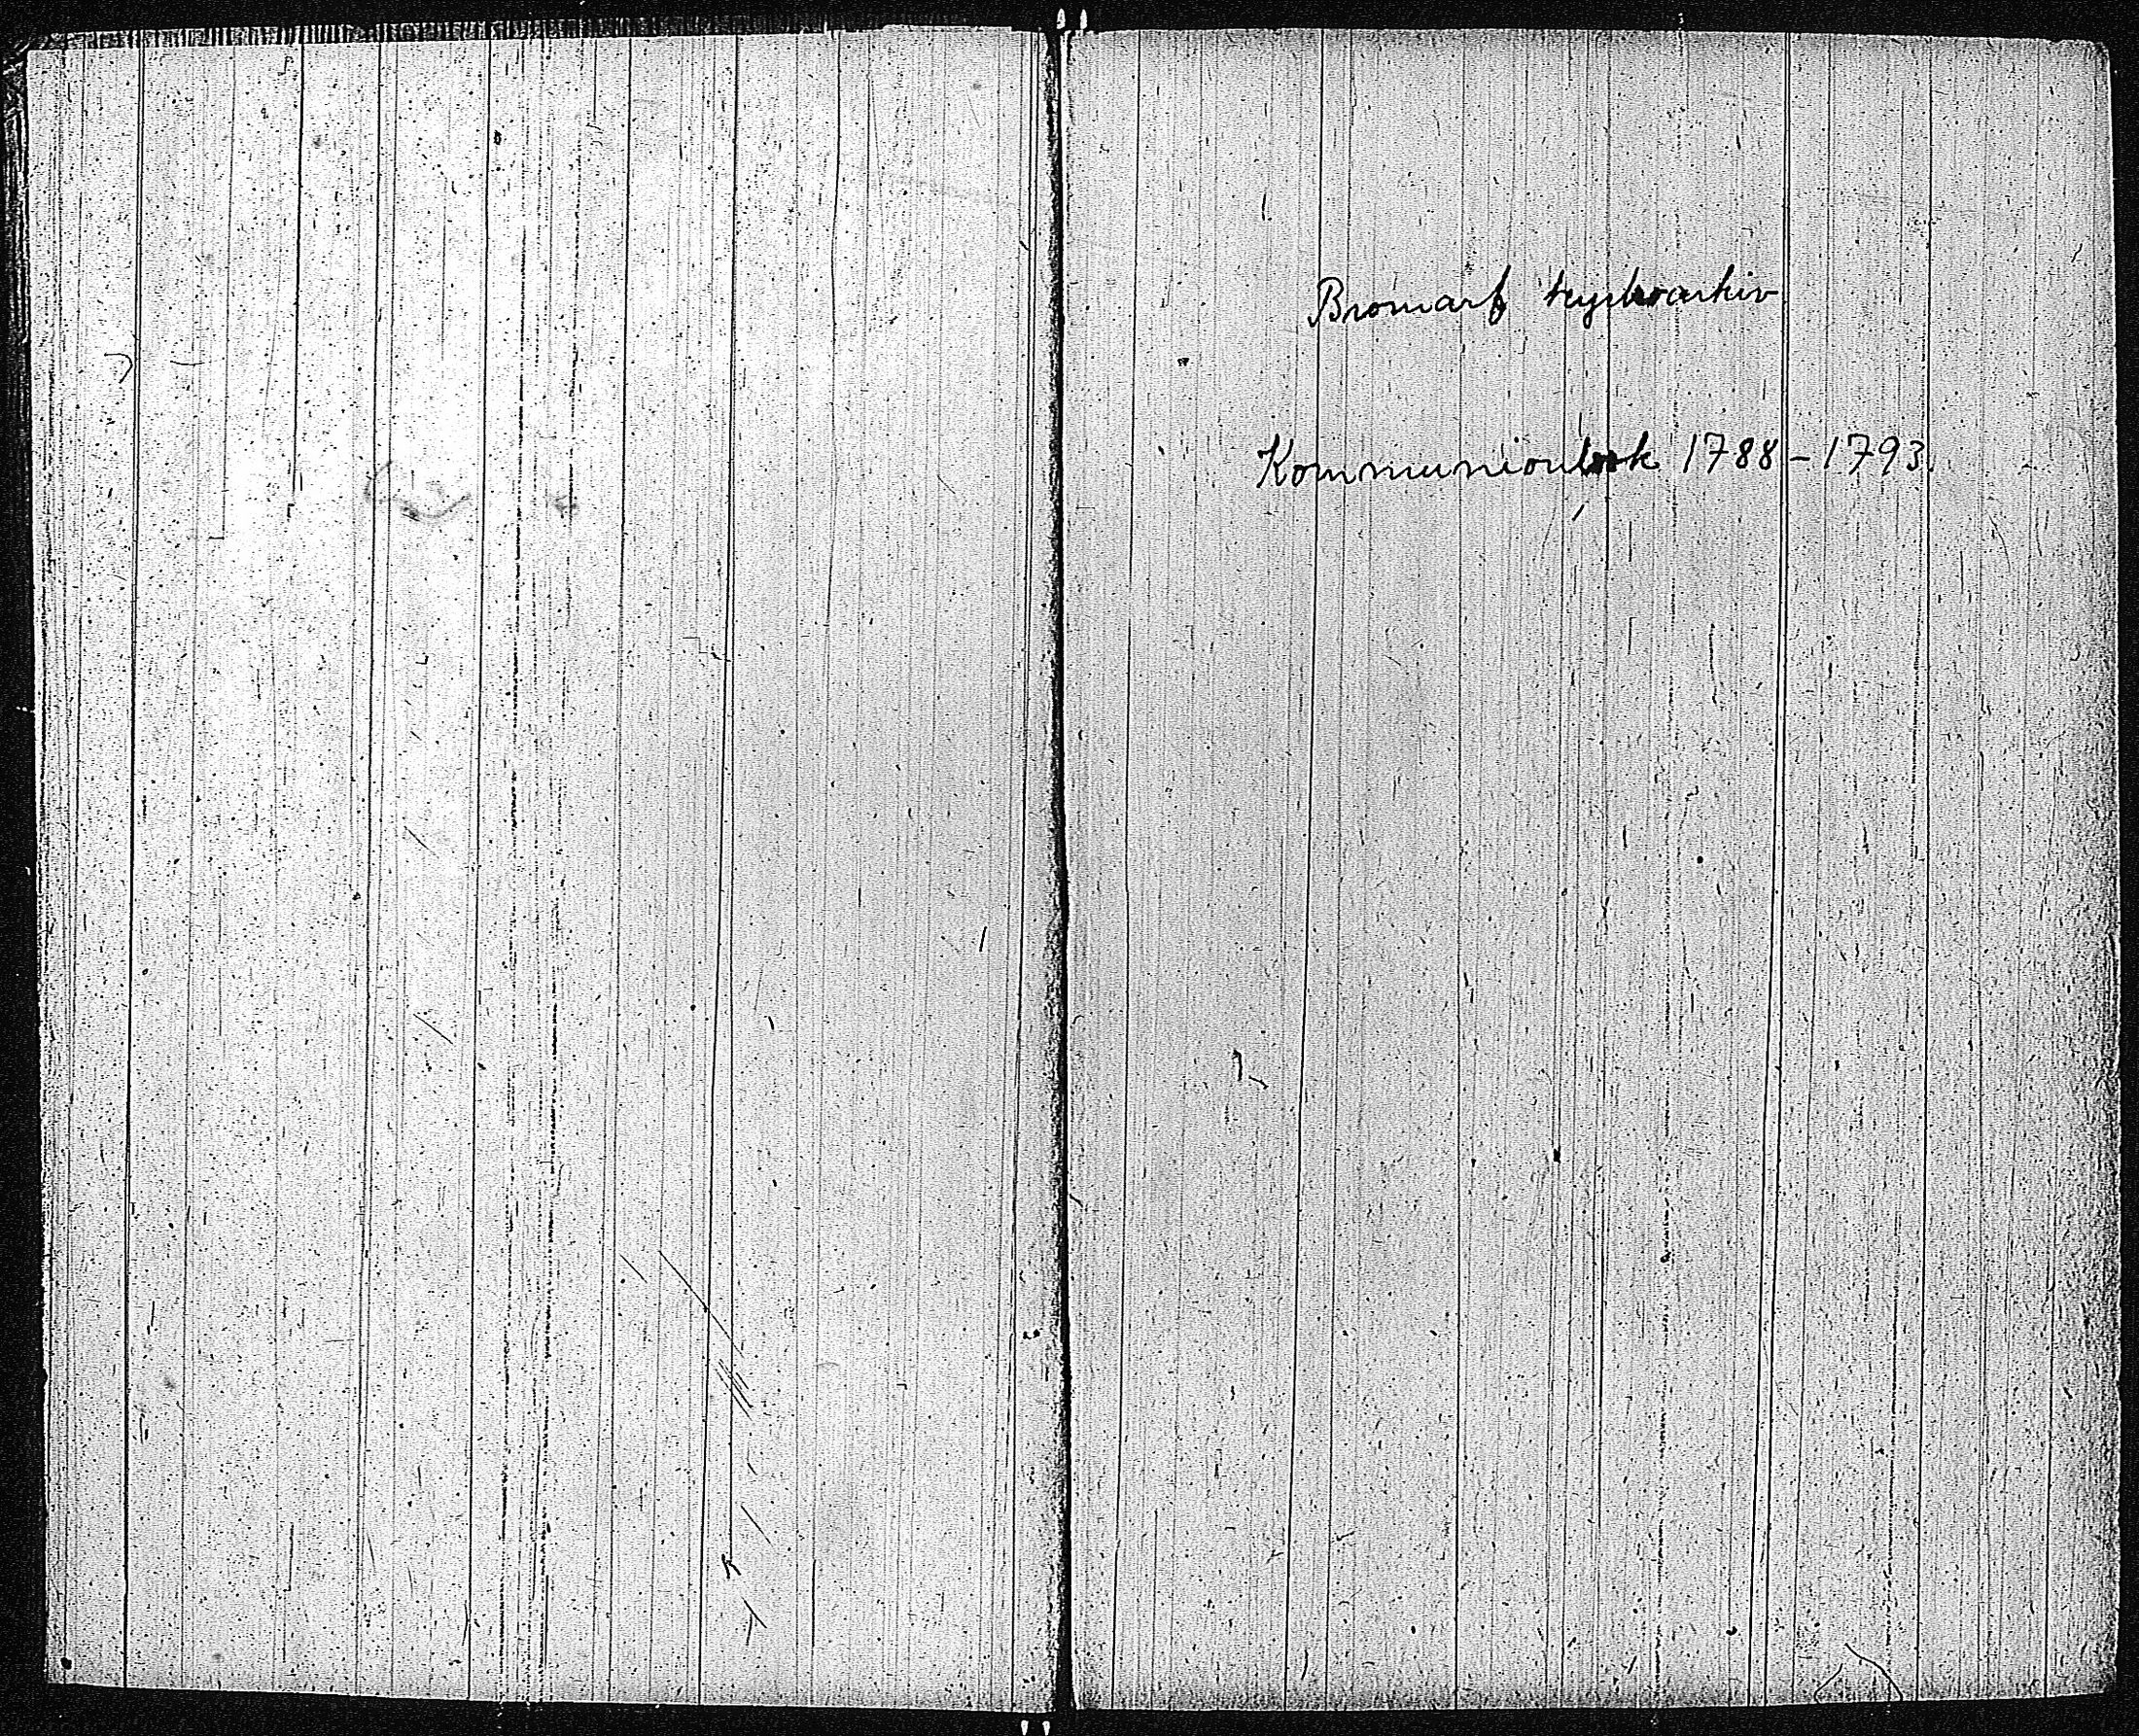 Bromarf kyrkoarkiv
Kommunionbok 1788-1793